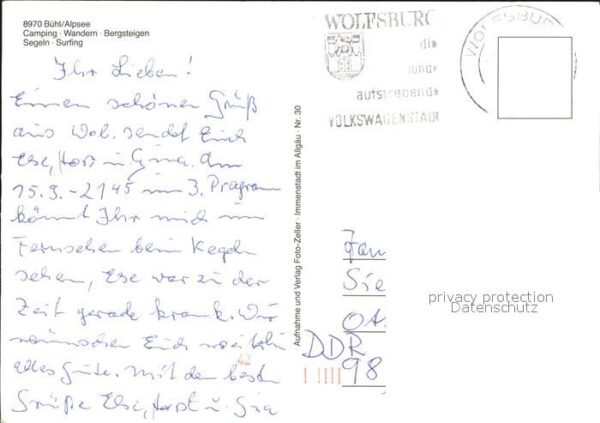 8970 Bühl/Alpsee
Camping · Wandern · Bergsteigen
Segeln · Surfing
Ihr Lieben!
Einen schönen Gruß
aus Wob. sendet Euch
Else, Horst u. Gina. Am
15.9. - 21 45 im 3. Program
könnt Ihr mich im
Fernsehen beim Kegeln
sehen, Else war zu der
Zeit gerade krank. Wir
wünschen Euch weiterhin
alles Gute. Mit den besten
Grüße Else, Horst u. Gina
Aufnahme und Verlag Foto-Zeller · Immenstadt im Allgäu · Nr. 30
WOLFSBURG
die
junge
aufstrebende
VOLKSWAGENSTADT
WOLFSBURG
Fam
Sie
Ot
DDR
98
42
privacy protection
Datenschutz